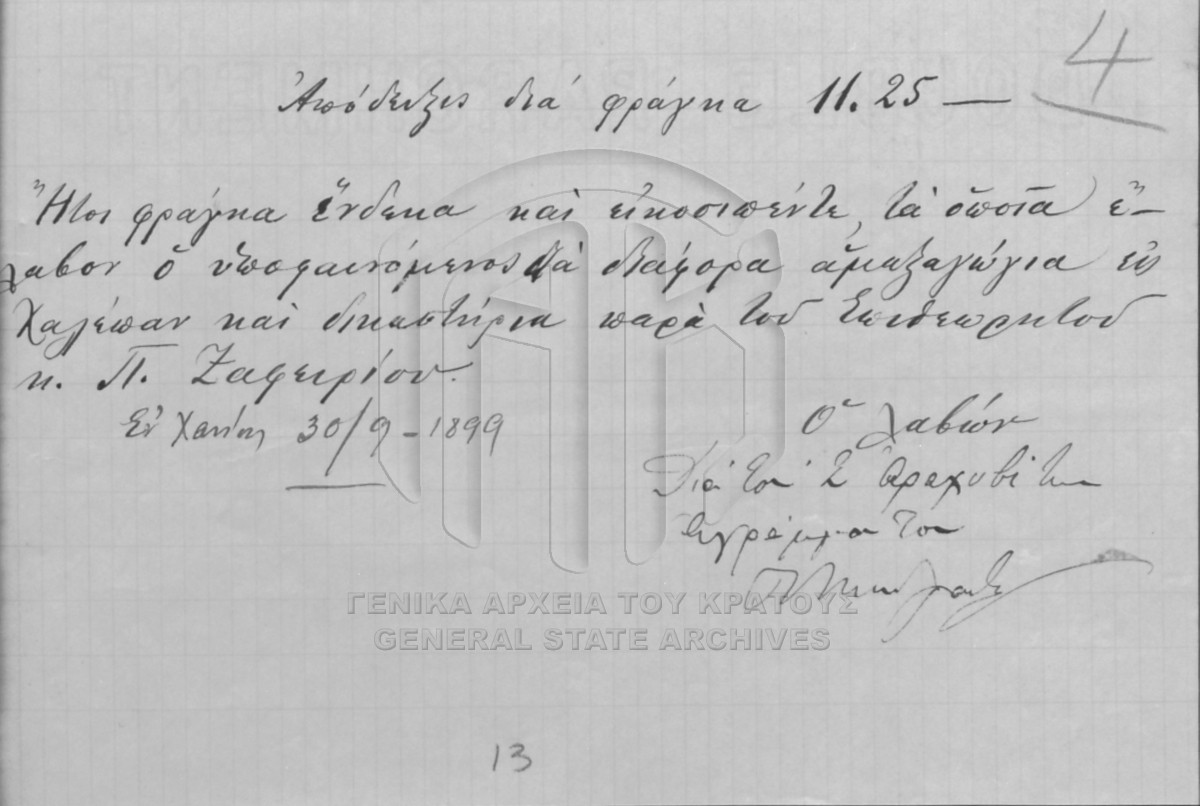 4
Ἀπόδειξις διά φράγκα 11.25 —
Ἤτοι φράγκα ἕνδεκα καὶ εἰκοσιπέντε, τὰ ὁποῖα ἔ-
λαβον ὁ ὑποφαινόμενος διὰ διάφορα ἁμαξαγώγια εἰς
Χαλέπαν καὶ δικαστήρια παρὰ τοῦ Ἐπιθεωρητοῦ
κ. Π. Ζαφειρίου.
Ἐν Χανίοις 30/9-1899
Ὁ λαβών
Διά τον
ἀγράμματον
ΓΕΝΙΚΑ ΑΡΧΕΙΑ ΤΟΥ ΚΡΑΤΟΥΣ
GENERAL STATE ARCHIVES
13